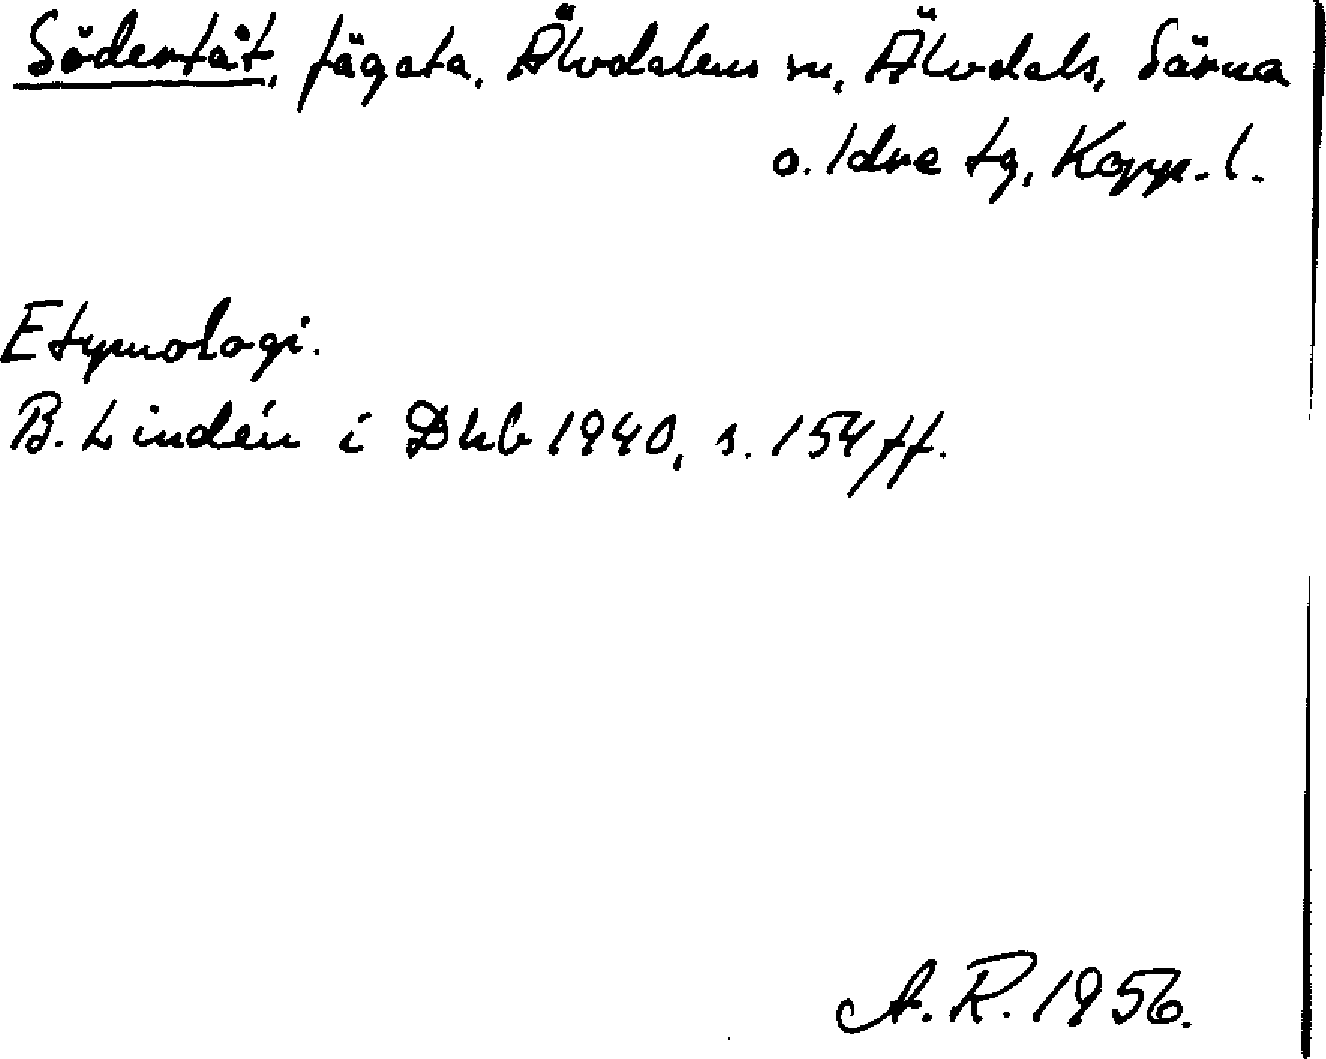 Södertåt, fägata, Älvdalens sn, Älvdals, Särna
o. Idre tg, Kopp. l.
Etymologi.
B. Lindén i Dhb 1940, s. 154 ff.
A. R. 1956.